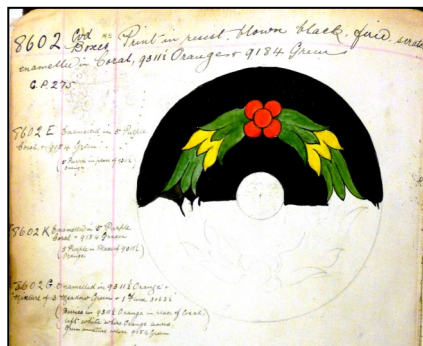 8602 Cvd Boxes Print in resist. blown black. fired
enamelled in Coral, 9311½ Orange + 9184 Green
G.P. 275
8602 E Enamelled in 5 Purple
Coral + 9184 Green
(5 Purple in place of 9311½
Orange
8602 K Enamelled in 5 Purple
Coral + 9184 Green
(5 Purple in place of 9311½
Orange
8602 G Enamelled in 9311½ Orange +
Mixture of 3 Meadow Green + 1
Orange in place of Coral,
left white where Orange
Green mixture where 9184 Green